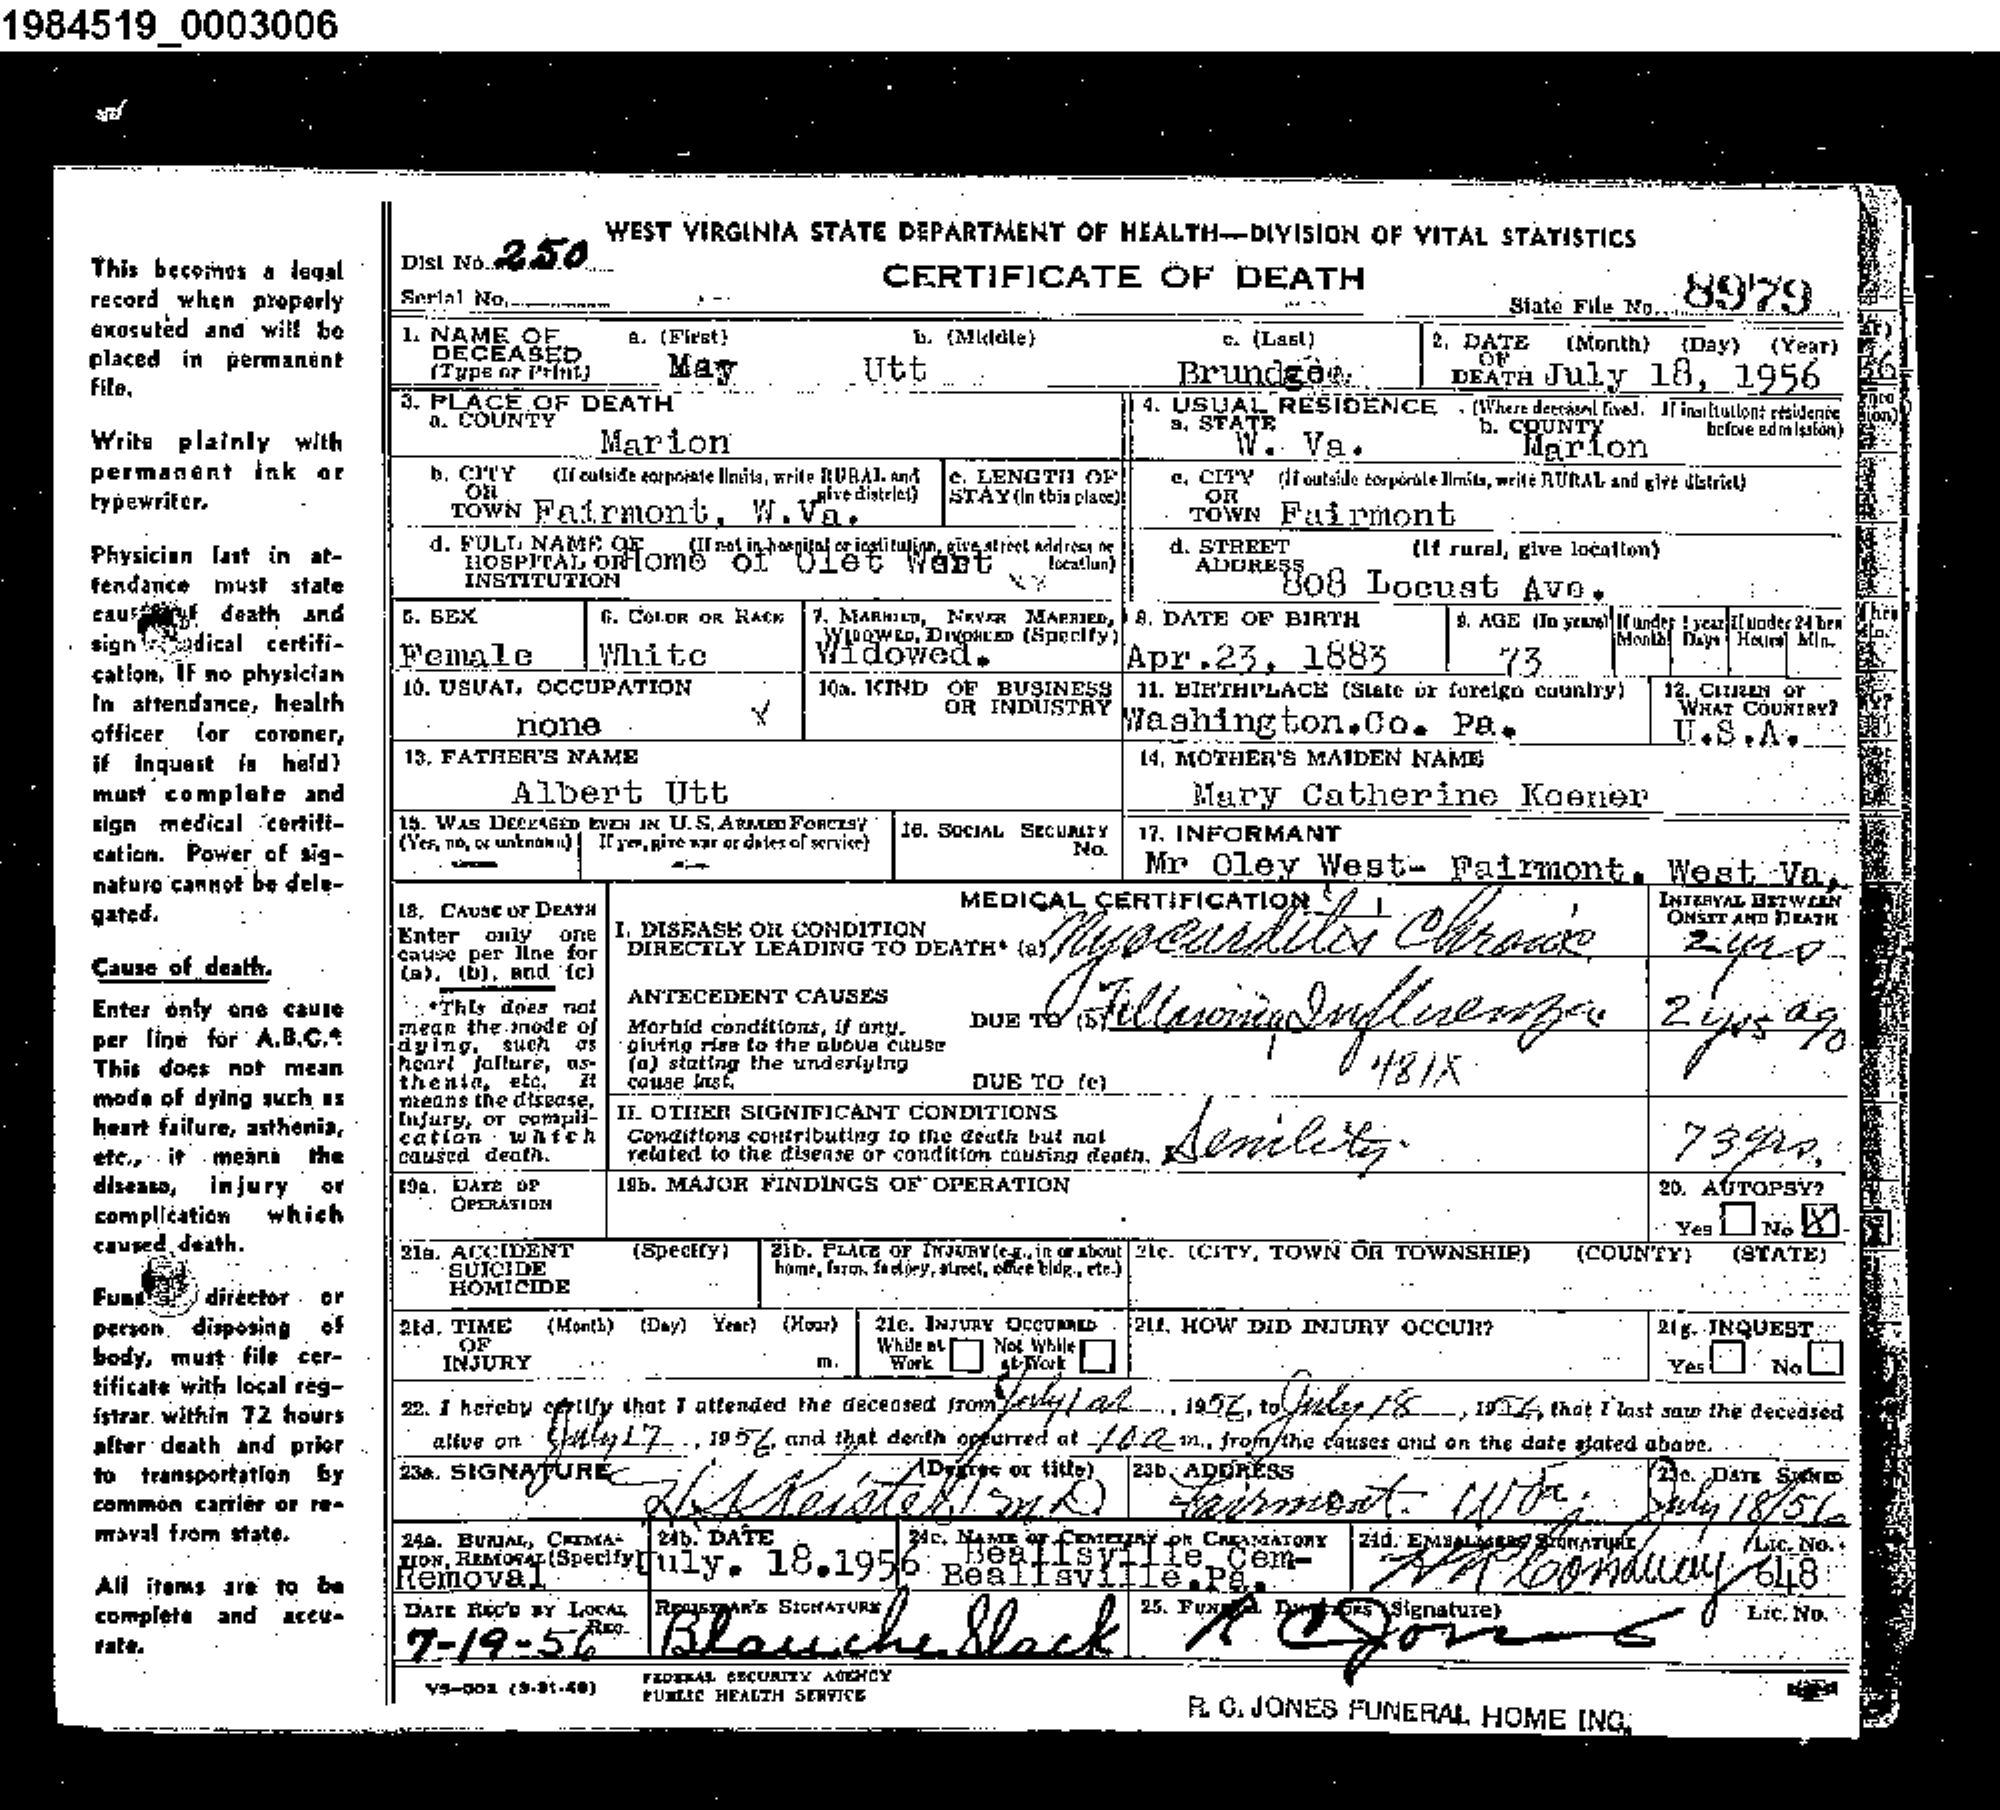 1984519_0003006
WEST VIRGINIA STATE DEPARTMENT OF HEALTH—DIVISION OF VITAL STATISTICS
Dist No. 250
CERTIFICATE OF DEATH
Serial No.
State File No. 8979
This becomes a legal
record when properly
executed and will be
placed in permanent
file.
Write plainly with
permanent ink or
typewriter.
Physician last in at-
tendance must state
cause of death and
sign medical certifi-
cation. If no physician
in attendance, health
officer (or coroner,
if inquest is held)
must complete and
sign medical certifi-
cation. Power of sig-
nature cannot be dele-
gated.
Cause of death.
Enter only one cause
per line for A.B.C.*
This does not mean
mode of dying such as
heart failure, asthenia,
etc., it means the
disease, injury or
complication which
caused death.
Funeral director or
person disposing of
body, must file cer-
tificate with local reg-
istrar within 72 hours
after death and prior
to transportation by
common carrier or re-
moval from state.
All items are to be
complete and accu-
rate.
1. NAME OF DECEASED (Type or Print)
a. (First) May
b. (Middle) Utt
c. (Last) Brundgee
2. DATE OF DEATH (Month) (Day) (Year) July 18, 1956
3. PLACE OF DEATH
a. COUNTY Marion
4. USUAL RESIDENCE (Where deceased lived. If institution: residence before admission)
a. STATE W. Va.
b. COUNTY Marion
b. CITY OR TOWN (If outside corporate limits, write RURAL and give district) Fairmont, W.Va.
c. LENGTH OF STAY (in this place)
c. CITY OR TOWN (If outside corporate limits, write RURAL and give district) Fairmont
d. FULL NAME OF HOSPITAL OR INSTITUTION (If not in hospital or institution, give street address or location) Home of Olet West
d. STREET ADDRESS (If rural, give location) 808 Locust Ave.
5. SEX Female
6. COLOR OR RACE White
7. MARRIED, NEVER MARRIED, WIDOWED, DIVORCED (Specify) Widowed.
8. DATE OF BIRTH Apr.23, 1883
9. AGE (In years) 73
If under 1 year Months Days
If under 24 hrs Hours Min.
10. USUAL OCCUPATION none
10a. KIND OF BUSINESS OR INDUSTRY
11. BIRTHPLACE (State or foreign country) Washington.Co. Pa.
12. CITIZEN OF WHAT COUNTRY? U.S.A.
13. FATHER'S NAME Albert Utt
14. MOTHER'S MAIDEN NAME Mary Catherine Koener
15. WAS DECEASED EVER IN U.S. ARMED FORCES?
(Yes, no, or unknown) (If yes, give war or dates of service)
16. SOCIAL SECURITY No.
17. INFORMANT Mr Oley West- Fairmont, West Va.
MEDICAL CERTIFICATION
INTERVAL BETWEEN ONSET AND DEATH
18. CAUSE OF DEATH
Enter only one
cause per line for
(a), (b), and (c)
*This does not
mean the mode of
dying, such as
heart failure, as-
thenia, etc. It
means the disease,
injury, or compli-
cation which
caused death.
I. DISEASE OR CONDITION
DIRECTLY LEADING TO DEATH* (a) Myocarditis Chronic 2 yrs
ANTECEDENT CAUSES
Morbid conditions, if any,
giving rise to the above cause
(a) stating the underlying
cause last.
DUE TO (b) Following Influenza 2 yrs ago
481X
DUE TO (c)
II. OTHER SIGNIFICANT CONDITIONS
Conditions contributing to the death but not
related to the disease or condition causing death. Senility 73 yrs.
19a. DATE OF OPERATION
19b. MAJOR FINDINGS OF OPERATION
20. AUTOPSY?
Yes No X
21a. ACCIDENT SUICIDE HOMICIDE (Specify)
21b. PLACE OF INJURY (e.g., in or about home, farm, factory, street, office bldg., etc.)
21c. (CITY, TOWN OR TOWNSHIP) (COUNTY) (STATE)
21d. TIME OF INJURY (Month) (Day) (Year) (Hour) m.
21e. INJURY OCCURRED
While at Work Not While at Work
21f. HOW DID INJURY OCCUR?
21g. INQUEST
Yes No
22. I hereby certify that I attended the deceased from July 1st, 1956, to July 18, 1956, that I last saw the deceased
alive on July 17, 1956, and that death occurred at m., from the causes and on the date stated above.
23a. SIGNATURE (Degree or title) Keister M D
23b. ADDRESS Fairmont. W Va.
23c. DATE SIGNED July 18/56
24a. BURIAL, CREMATION, REMOVAL (Specify) Removal
24b. DATE July. 18.1956
24c. NAME OF CEMETERY OR CREMATORY Beallsville Cem- Beallsville.Pa.
24d. EMBALMER'S SIGNATURE Conaway Lic. No. 648
DATE REC'D BY LOCAL REG. 7-19-56
REGISTRAR'S SIGNATURE Blanche Slack
25. FUNERAL DIRECTORS (Signature) R C Jones Lic. No.
VS-002 (3-31-49)
FEDERAL SECURITY AGENCY
PUBLIC HEALTH SERVICE
R. C. JONES FUNERAL HOME INC.